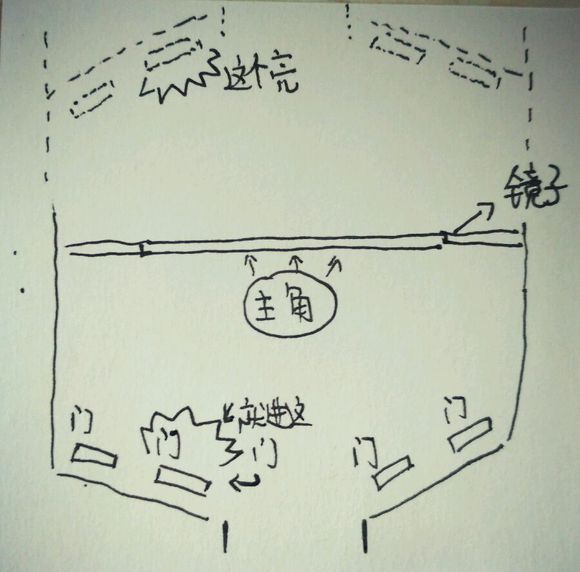 这个亮
镜子
主角
门
进这
门
门
门
门
门